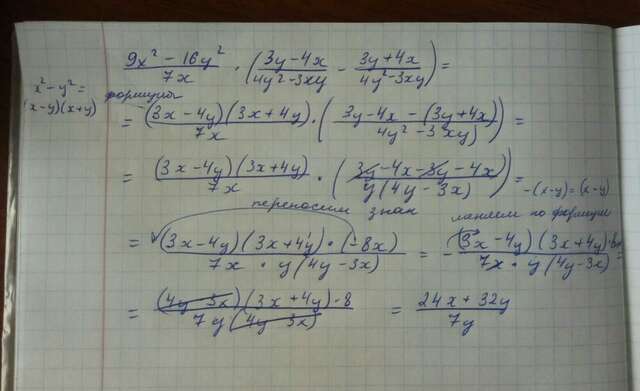 (9x² - 16y²)/7x · ((3y-4x)/(4y²-3xy) - (3y+4x)/(4y²-3xy)) =
x² - y² =
(x-y)(x+y)
формулы
= (3x-4y)(3x+4y)/7x · ((3y-4x-(3y+4x))/(4y²-3xy)) =
= (3x-4y)(3x+4y)/7x · ((3y-4x-3y-4x)/y(4y-3x)) =
-(x-y)=(x-y)
переносим знак
меняем по формуле
= (3x-4y)(3x+4y)·(-8x)/7x·y(4y-3x) = -(3x-4y)(3x+4y)·8x/7x·y(4y-3x) =
= (4y-3x)(3x+4y)·8/7y(4y-3x) = (24x+32y)/7y